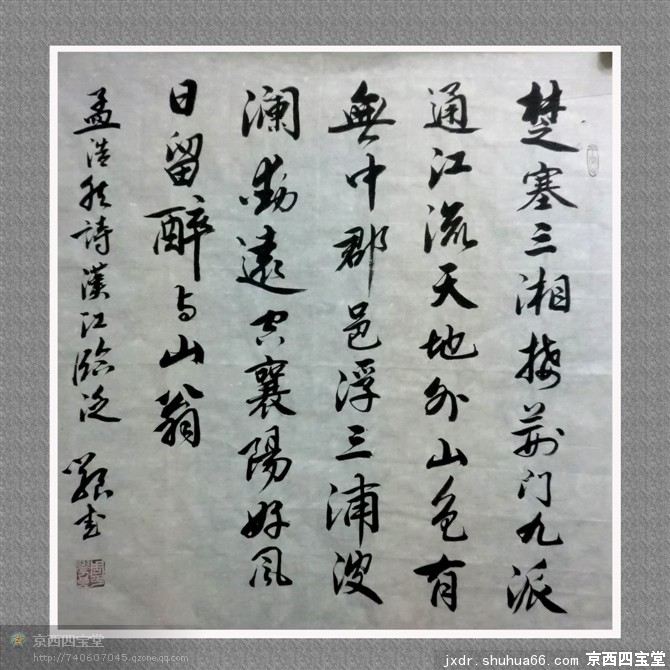 楚塞三湘接荆门九派
通江流天地外山色有
無中郡邑浮三浦波
澜動遠空襄陽好风
日留醉与山翁
孟浩然詩漢江臨泛
書
京西四宝堂
http://740607045.qzone.qq.com
jxdr.shuhua66.com 京西四宝堂